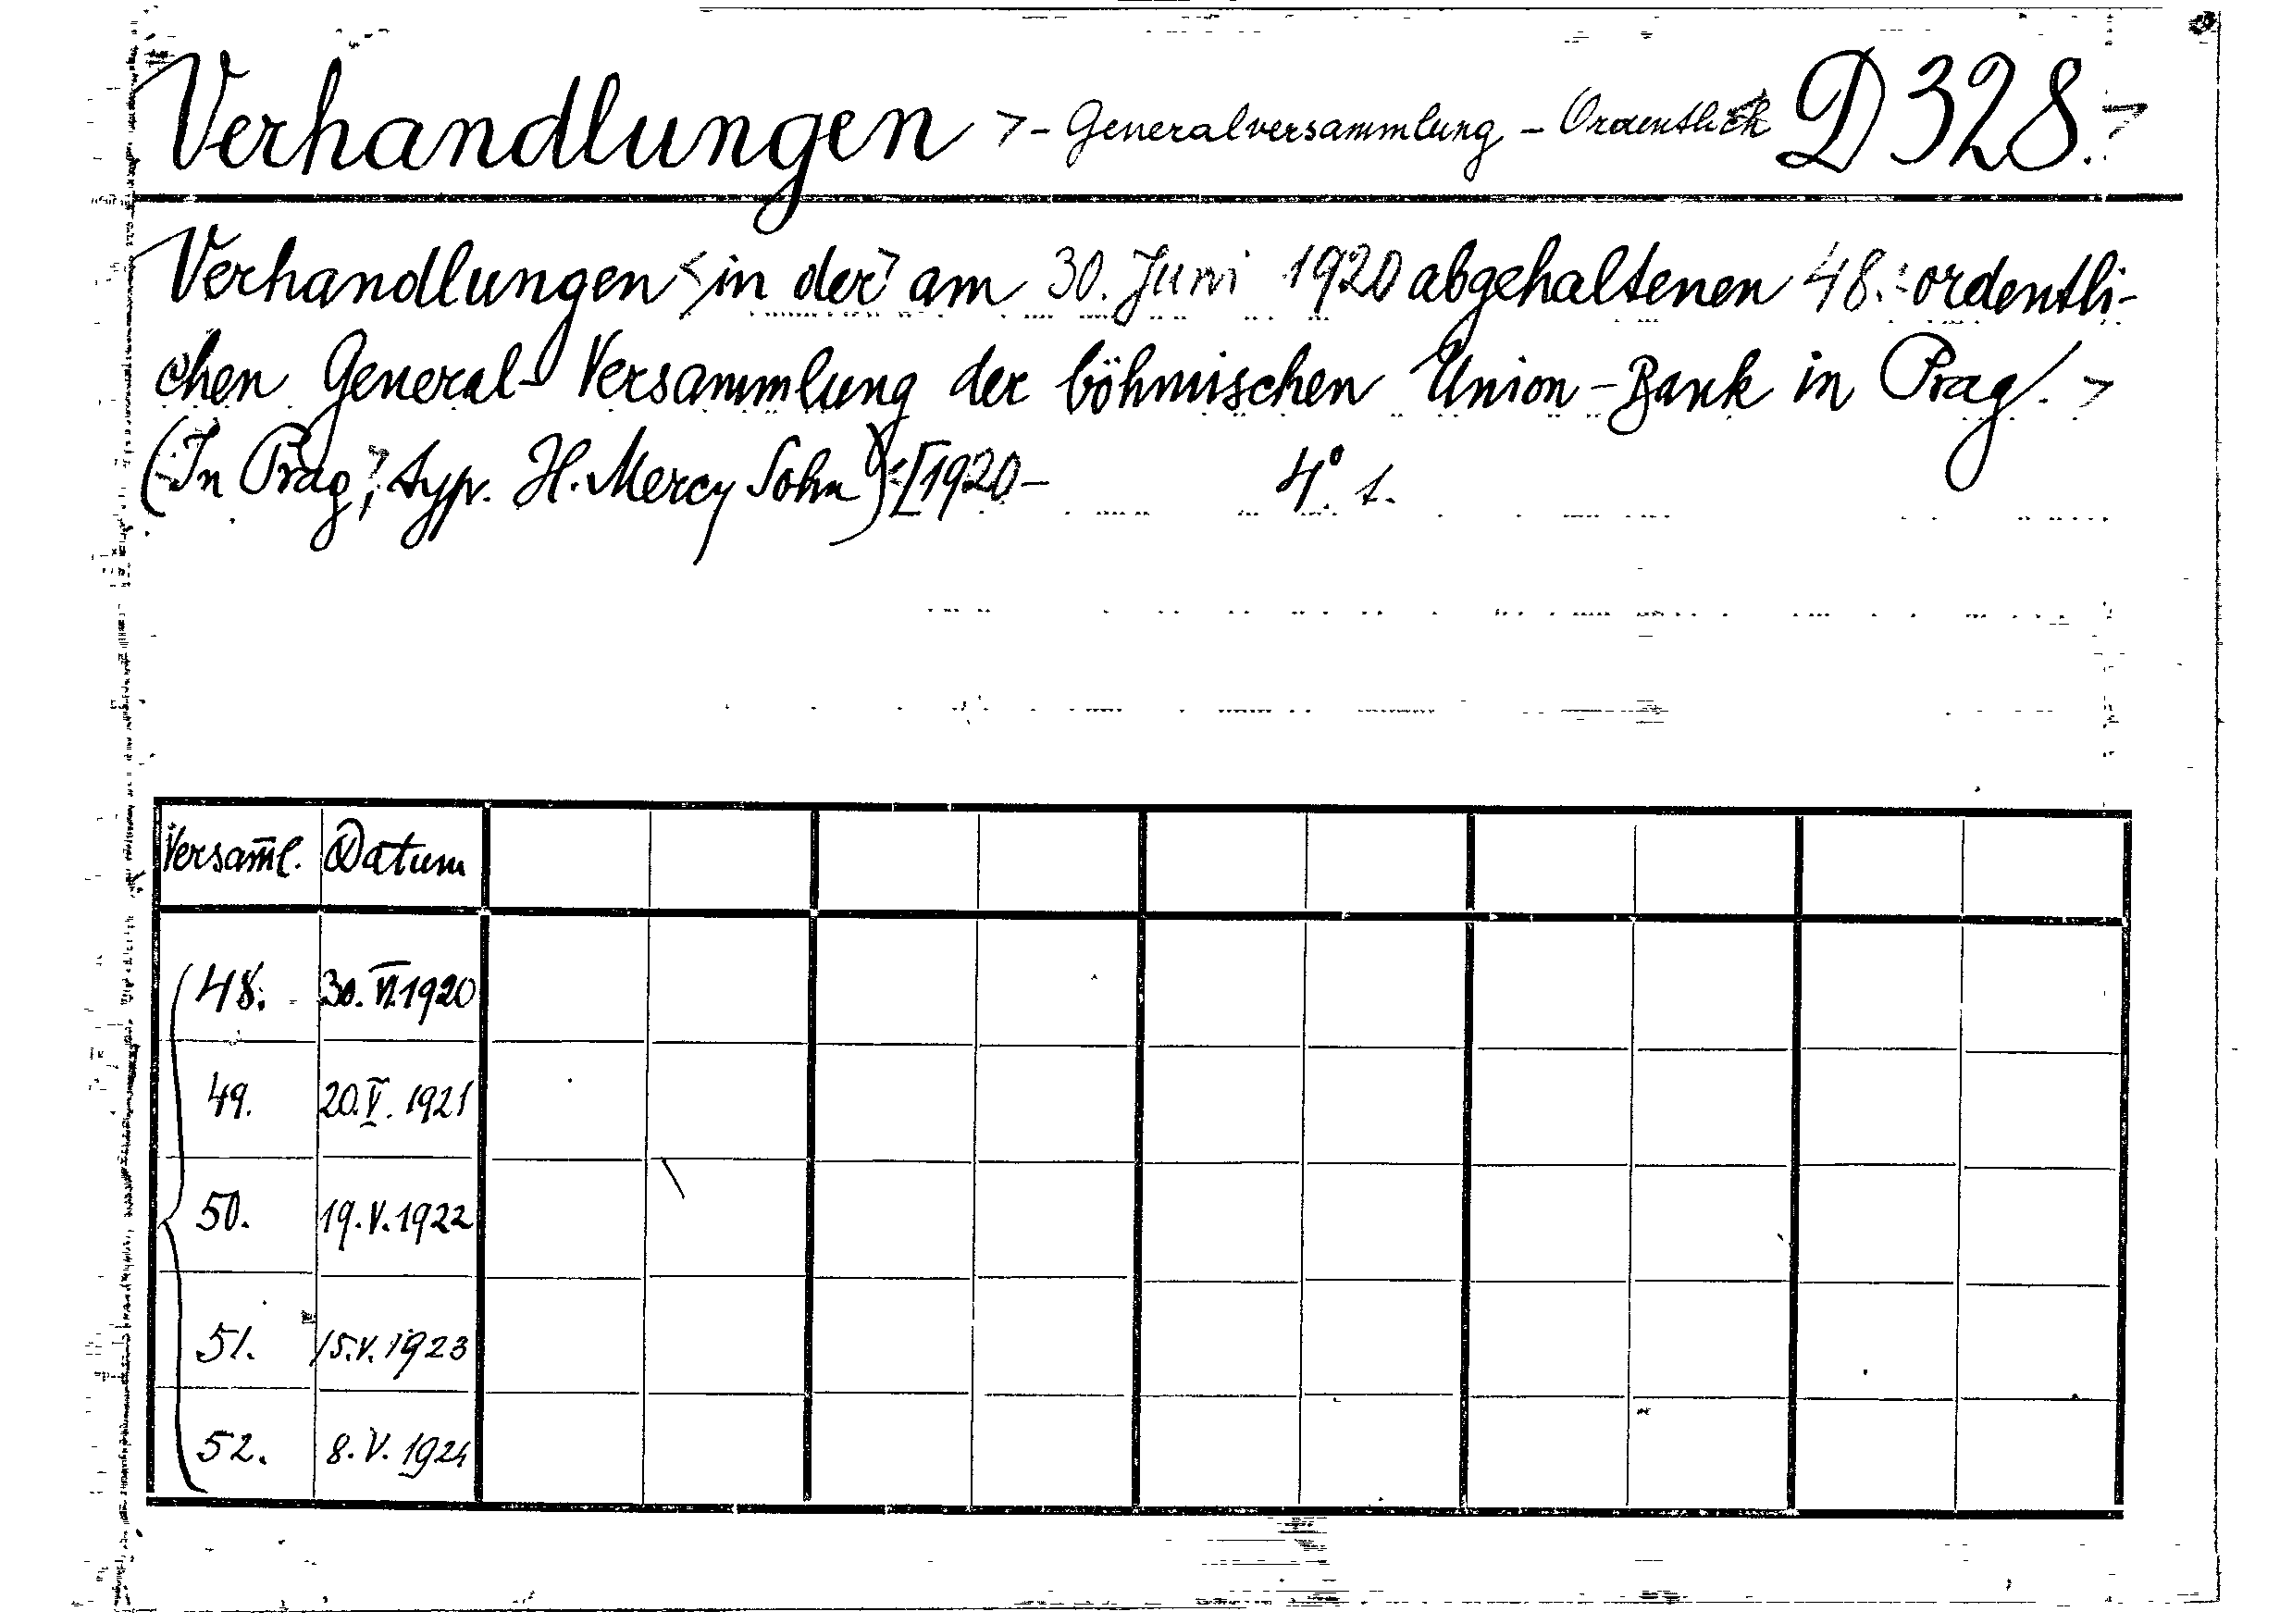 Verhandlungen > - Generalversammlung - Ordentlich D 328.
Verhandlungen <in der> am 30. Juni 1920 abgehaltenen 48. ordentli-
chen General-Versammlung der böhmischen Union-Bank in Prag. >
(In Prag, typ. H. Mercy Sohn) [1920- 4° 1.
Versam̄l. Datum
48. 30. VI. 1920
49. 20. V. 1921
50. 19. V. 1922
51. 15. V. 1923
52. 8. V. 1924